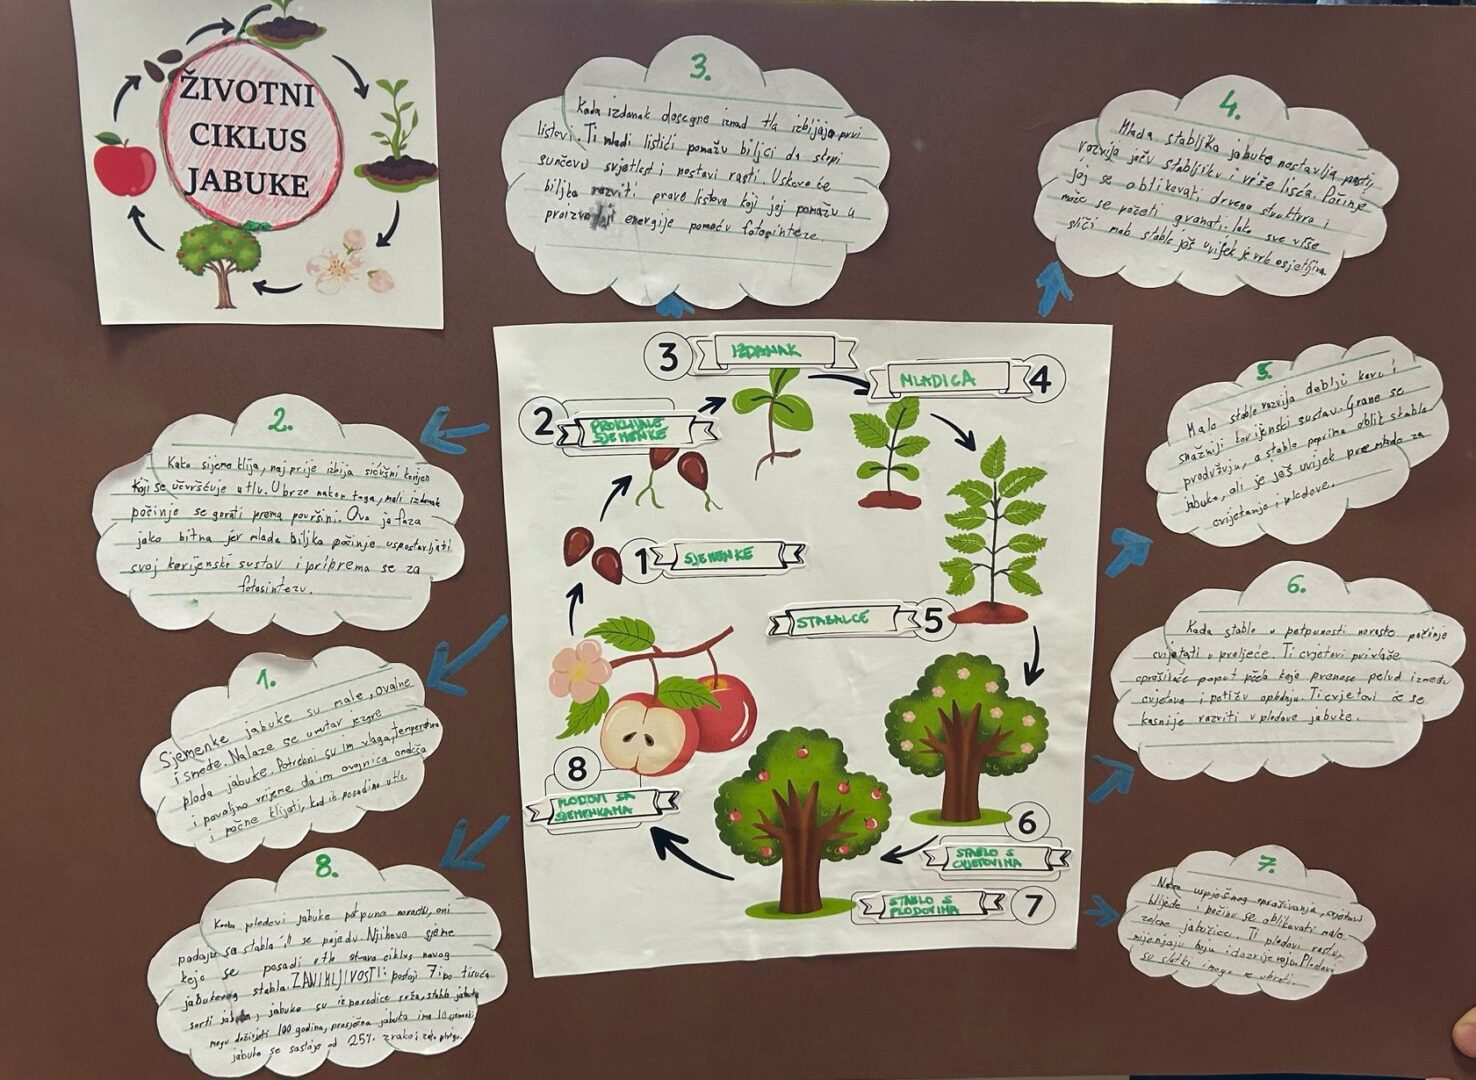 ŽIVOTNI
CIKLUS
JABUKE
3.
Kada izdanak dosegne iznad tla izbijaju prvi
listovi. Ti mladi listići pomažu biljci da stopi
sunčevu svjetlost i nastavi rasti. Uskoro će
biljka razviti prave listove koji joj pomažu u
energije pomoću fotosinteze.
4.
Mlada stabljika jabuke nastavlja rasti,
razvija jaču stabljiku i više lišća. Počinje
joj se oblikovati drvena struktura i
može se početi granati. Iako sve više
sliči mab stablo još uvijek je vrlo osjetljiva.
2.
Kako sijeme klija, najprije izbija sićušni korijen
koji se učvršćuje u tlu. Ubrzo nakon toga, mali izdanak
počinje se gorati prema površini. Ova je faza
jako bitna jer mlada biljka počinje uspostavljati
svoj korijenski sustav i priprema se za
fotosintezu.
5.
Malo stablo razvija deblju koru i
snažniji korijenski sustav. Grane se
produžuju, a stablo poprima oblik stabla
jabuke, ali je još uvijek premlado za
cvijetanje i plodove.
6.
Kada stablo u potpunosti naraste počinje
cvijetati u proljeće. Ti cvjetovi privlače
oprašivače poput pčela koje prenose pelud između
cvjetova i potiču oplodnju. Ti cvjetovi će se
kasnije razviti u plodove jabuke.
1.
Sjemenke jabuke su male, ovalne
i smeđe. Nalaze se unutar jezgre
ploda jabuke. Potrebni su im vlaga, temperatura
i povoljno vrijeme da im ovojnica omekša
i počne klijati, kad ih posadimo u tlo.
8.
Kada plodovi jabuke potpuno narastu, oni
padaju sa stabla ili se pojedu. Njihove sjeme
koje se posadi u tlo stvara ciklus novog
jabukovog stabla. ZANIMLJIVOSTI: postoji 7 ipo tisuća
sorti jabuka, jabuke su iz porodice ruža, stabla jabuke
mogu doživjeti 100 godina, prosječna jabuka ima 10 sjemenki
jabuka se sastoje od 25% zraka i zato plutaju.
7.
Nakon uspješnog oprašivanja, cvjetovi
blijede i počinju se oblikovati male
zelene jabučice. Ti plodovi rastu,
mijenjaju boju i dozrijevaju. Plodovi
su slatki i mogu se ubrati.
3 IZDANAK
MLADICA 4
2 PROKLIJALE
SJEMENKE
1 SJEMENKE
STABALCE 5
6
STABLO S
CVJETOVIMA
STABLO S
PLODOVIMA 7
8
PLODOVI SA
SJEMENKAMA